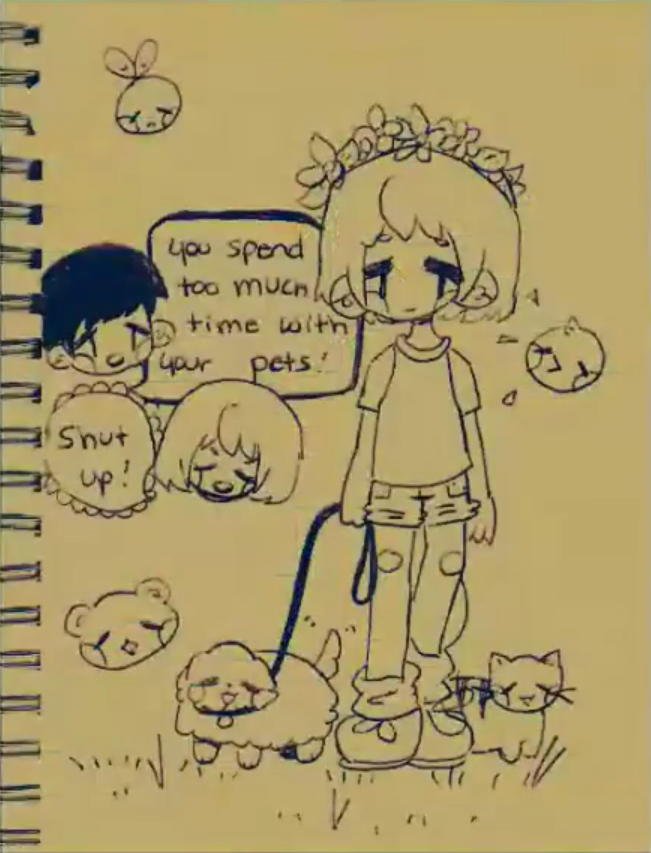 you spend
too much
time with
your pets!
Shut
up!